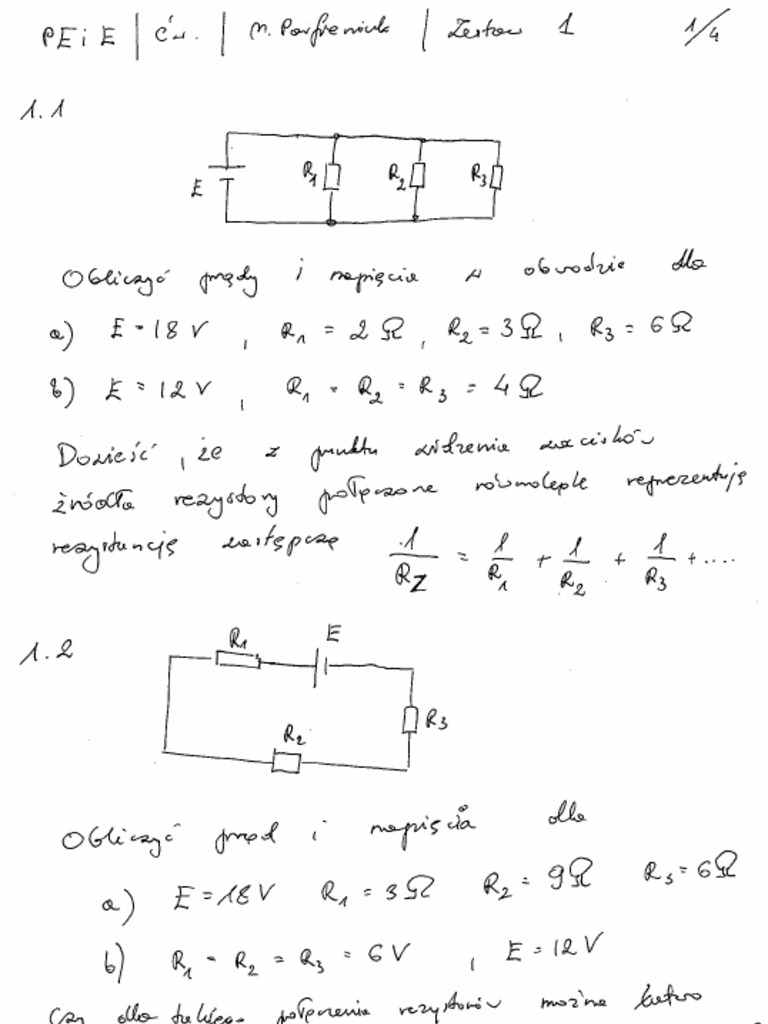 PE i E | Ćw. | M. Parfieniuk | Zestaw 1 1/4
1.1
E R1 R2 R3
Obliczyć prądy i napięcia w obwodzie dla
a) E = 18 V , R1 = 2 Ω , R2 = 3 Ω , R3 = 6 Ω
b) E = 12 V , R1 = R2 = R3 = 4 Ω
Dowieść, że z punktu widzenia zacisków
źródła rezystory połączone równolegle reprezentują
rezystancję zastępczą 1/RZ = 1/R1 + 1/R2 + 1/R3 + ....
1.2
R1 E
R3
R2
Obliczyć prąd i napięcia dla
a) E = 18 V R1 = 3 Ω R2 = 9 Ω R3 = 6 Ω
b) R1 = R2 = R3 = 6 V , E = 12 V
Czy dla takiego połączenia rezystorów można łatwo